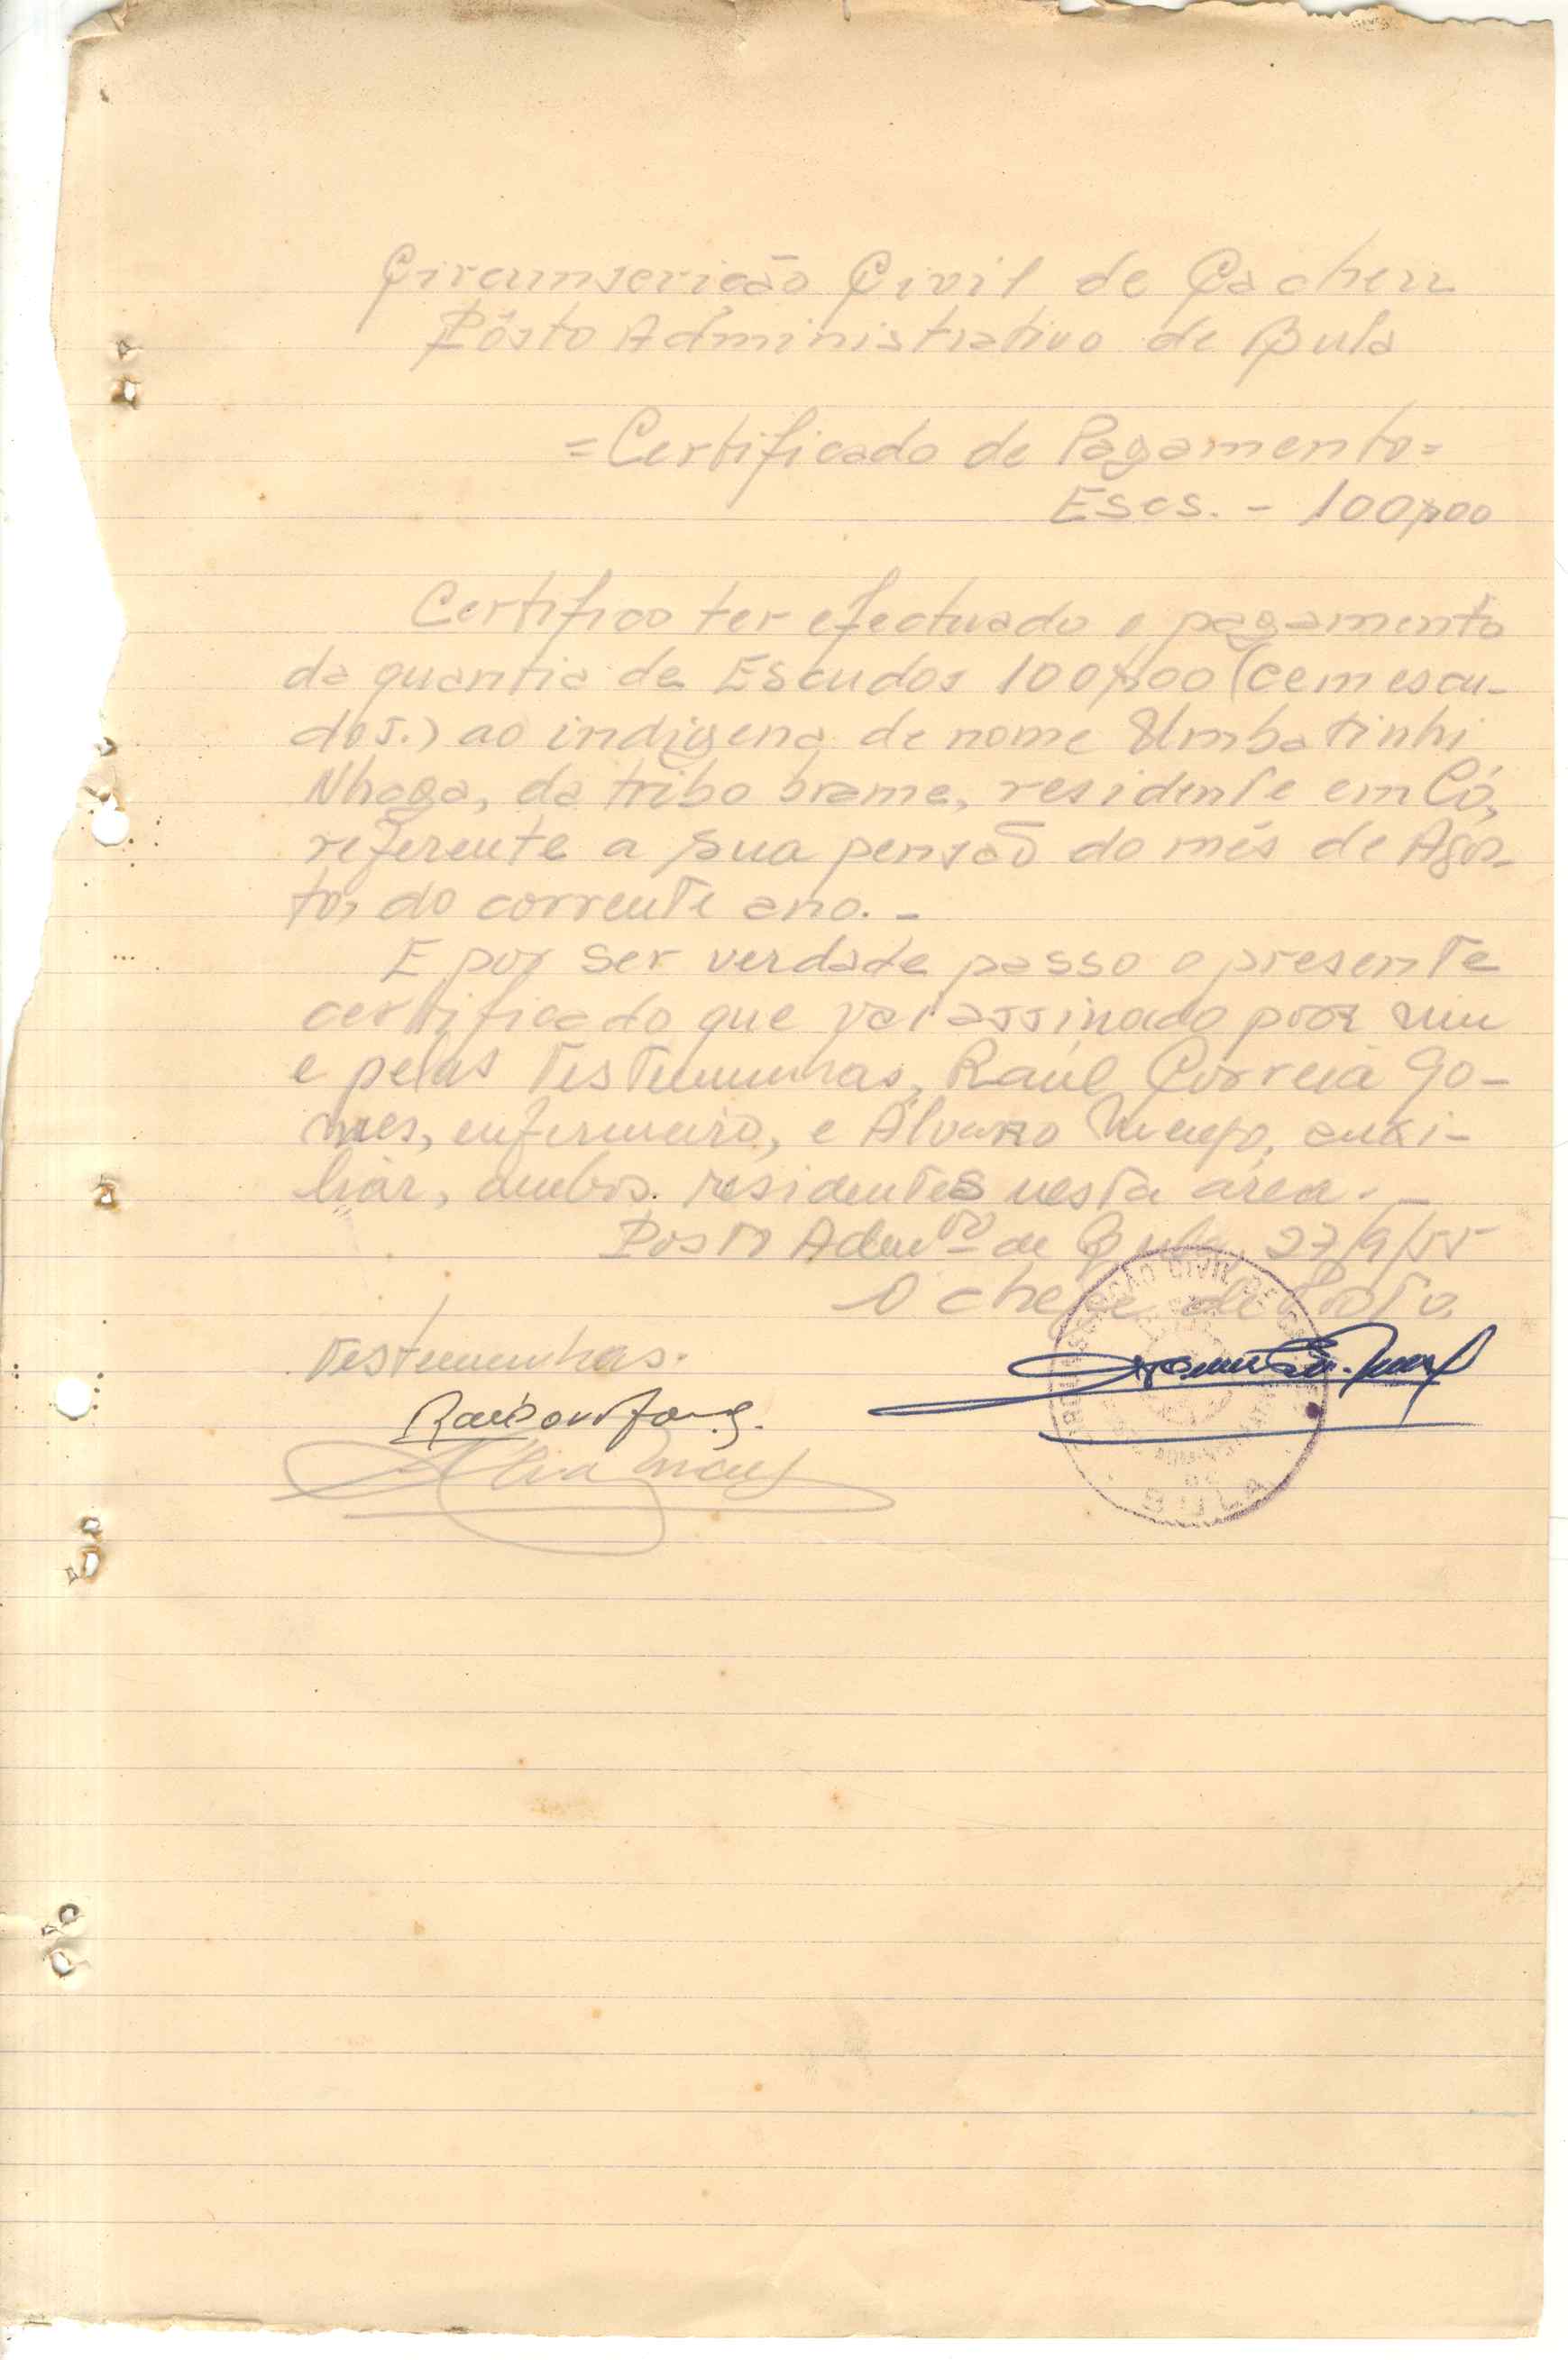 Circunscrição Civil de Cacheu
Pôsto Administrativo de Bula
=Certificado de Pagamento=
Escs. - 100$00
Certifico ter efectuado o pagamento
da quantia de Escudos 100$00 (cem escu-
dos.) ao indigena de nome Umbatinhi
Nhaga, da tribo brame, residente em Có,
referente a sua pensão do mês de Agos-
to, do corrente ano. -
E por ser verdade passo o presente
certificado que vai assinado por mim
e pelas testemunhas, Raúl Correia Go-
mes, enfermeiro, e Álvaro, auxi-
liar, ambos residentes nesta área. -
Posto Admvo de Bula, 27/9/55
O chefe de Posto,
Testemunhas.
CIRCUNSCRIÇÃO CIVIL DE CACHEU
POSTO ADMINISTRATIVO
DE
BULA